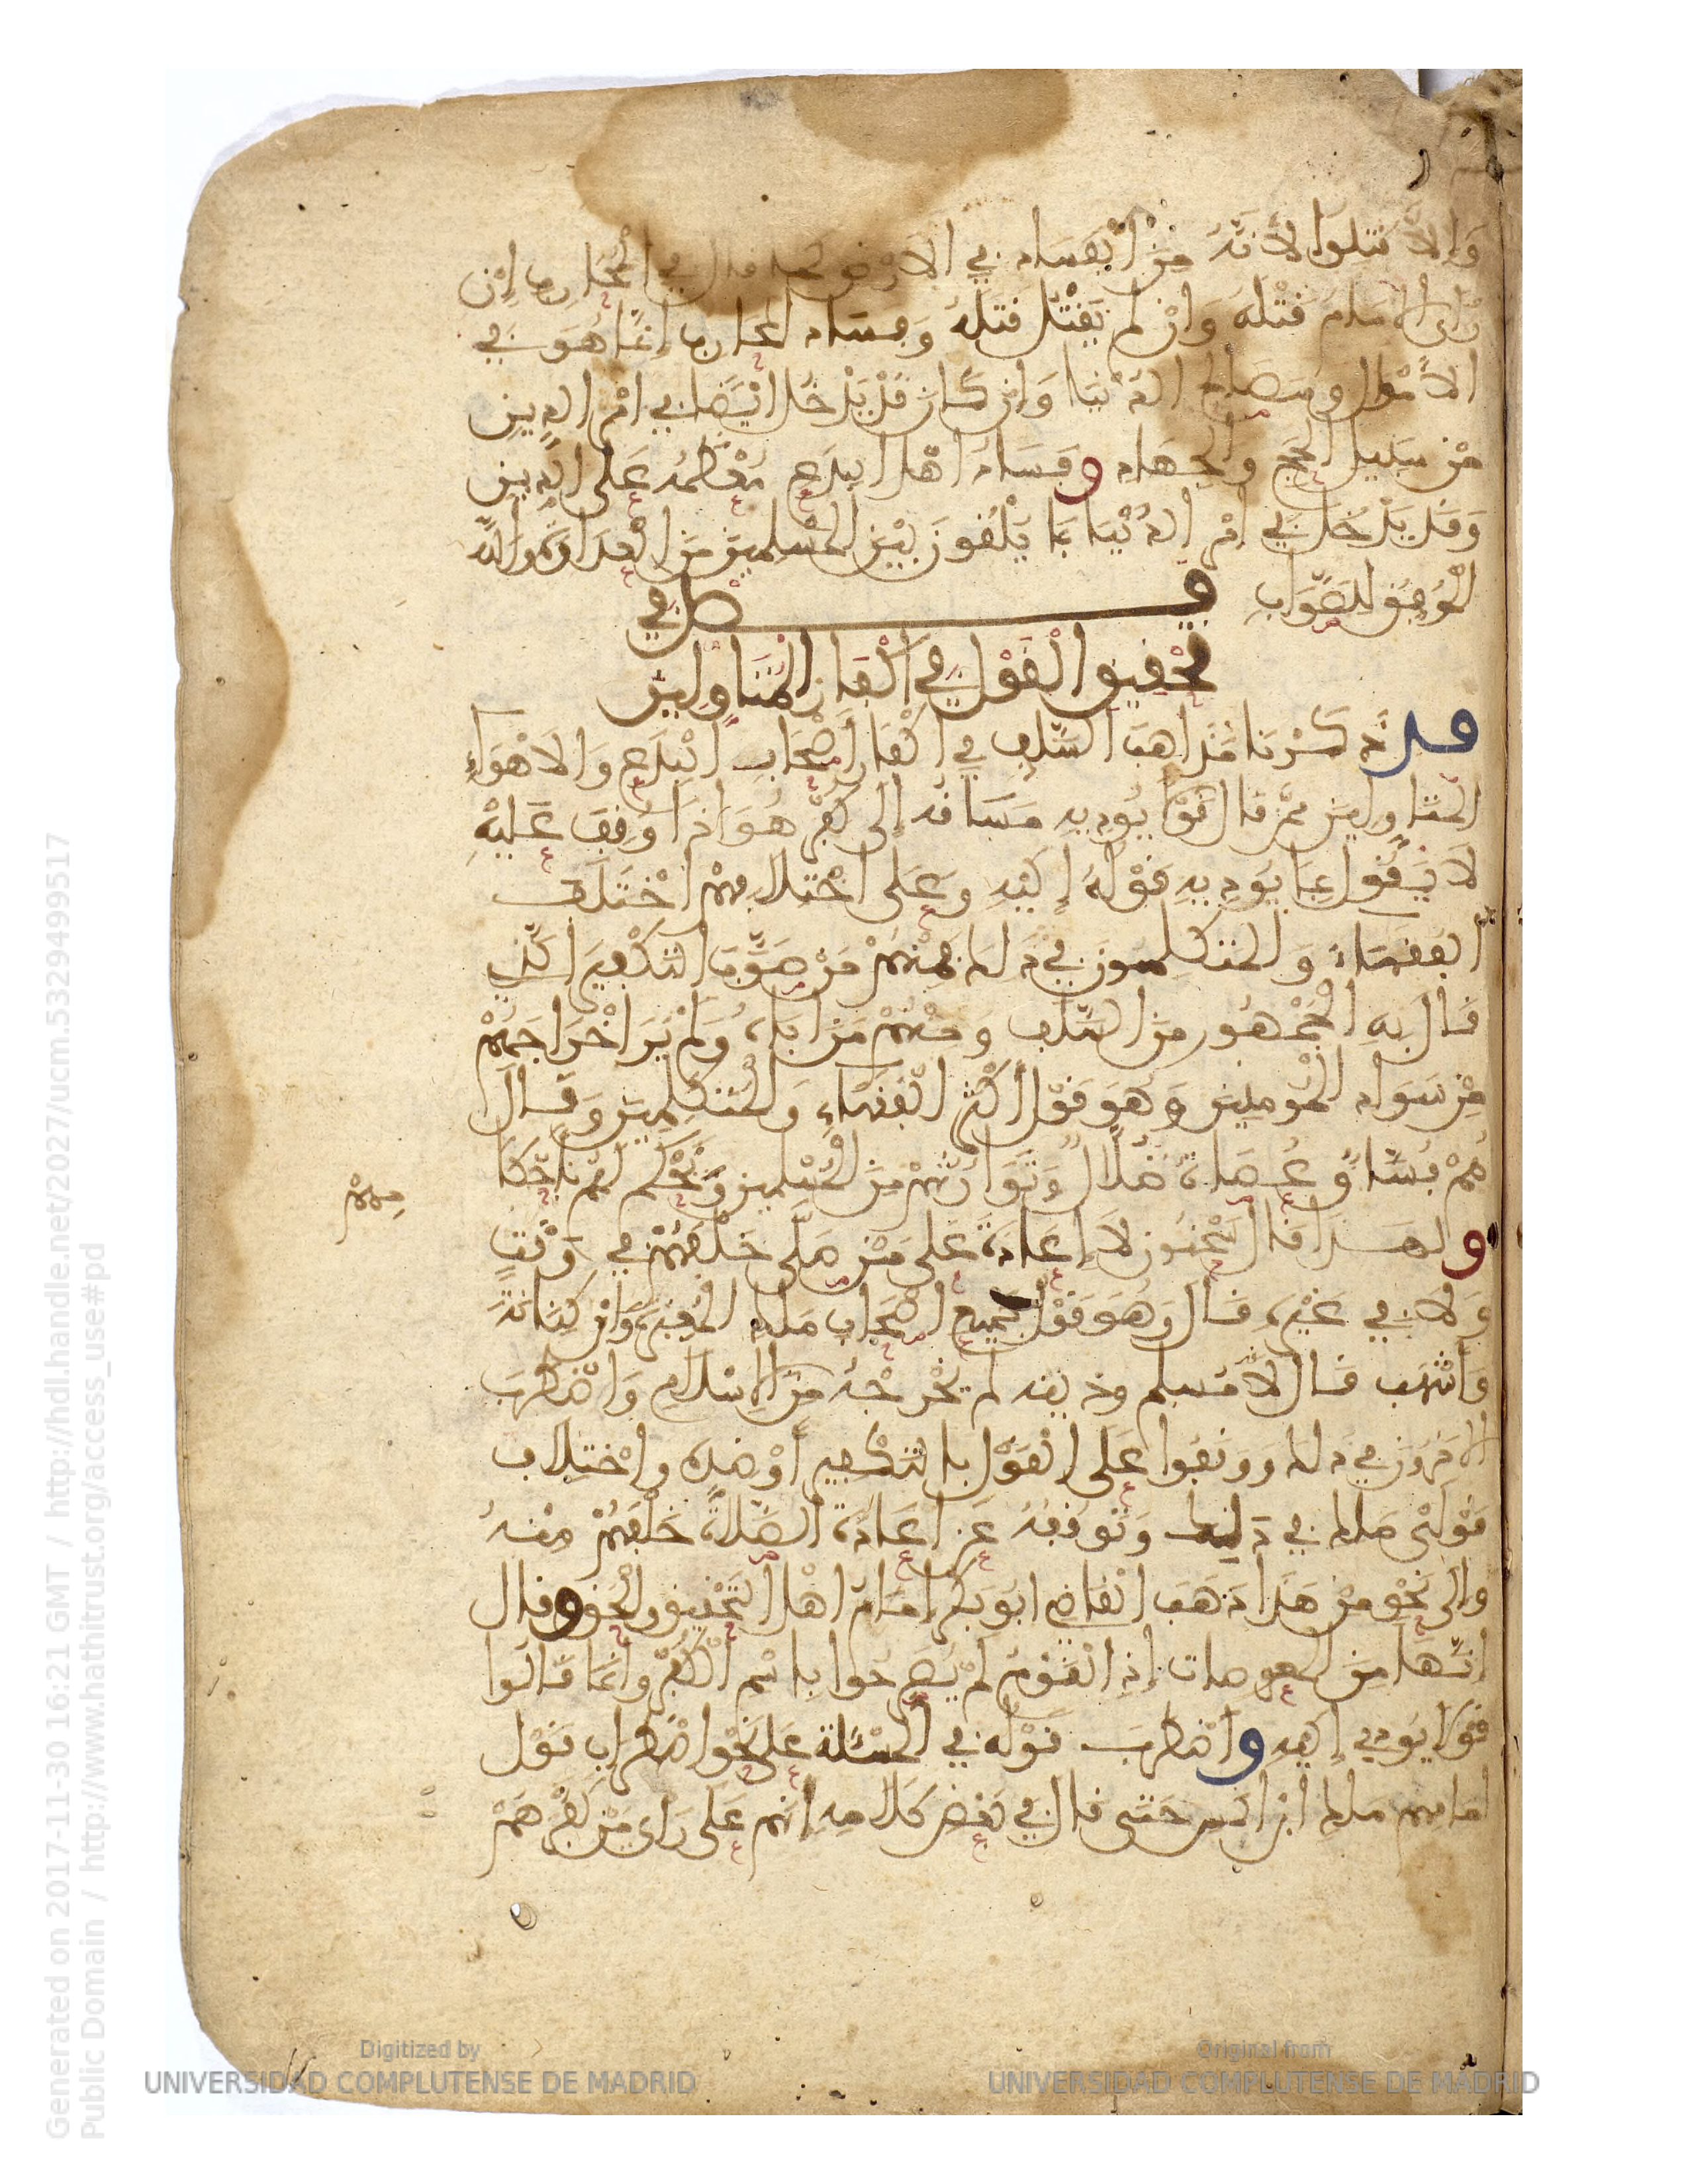 وَإِلاَّ قتلوا لأنَّهُ مِنَ الْفَسادِ في الارض كما قال في المُحَارِب إِن
رأى الإمام قَتْلَهُ وَإنْ لم يَقْتُل قَتَلَهُ وَفسَاد المحارب إنّما هُوَ في
الأمْوال ومَصَالح الدُّنيَا وَإن كَان قَدْ يَدْخُل أيْضا في امْر الدِّين
مِن سَبِيل الحَجّ والجِهَاد وفَسَاد أهْل البِدَع مُعْظمُه عَلى الدِّين
وَقَد يَدْخُل في أمْر الدُّنْيَا بمَا يُلْقُونَ بَيْن المُسْلمِينَ مِنَ العَدَاوَةِ والله
المُوَفِّق للصَّوَابِ فصل في
تَحْقِيق الْقَوْل في إكْفَار المُتَأوِّلِينَ
قد ذكرْنا مَذاهبَ السَّلَف في إكْفَار أصْحَابِ البِدَع وَالاهْوَاءِ
المتأولين ممّن قال قَوْلا يُوديه مَسَاقُه إلى كُفْر هُوَ اذا وُقِفَ عَليْهِ
لا يَقُول بمَا يودِيهِ قَوْلهُ إليْهِ وعَلى اخْتلافِهمْ اخْتَلَف
الفقهاءُ وَالمتكلمون في ذلك فمِنْهمْ مَنْ صَوَّبَ التكْفِيرَ الذي
قَال بهِ الجُمْهُور مِن السَّلَف وَمنْهُمْ مَن أبَاهُ وَلمْ يَرَ اخْرَاجَهُمْ
مِنْ سَوَاد المُومِنِينَ وَهُوَ قَوْل أكْثَر الْفُقَهَاءِ وَالْمُتَكلّمِينَ وَقَال
هُمْ فُسّاقٌ عُصَاةٌ ضُلّالٌ وَنُوَارثُهُمْ مِنَ المُسْلمِين وَنَحْكُم لهُم بأحْكا
مِهِمْ
ولهَذا قَال سُحْنُون لاَ إعَادَةَ عَلى مَنْ صَلّى خَلْفَهُمْ في وَقْتٍ
وَلا في غَيْرِهِ قَال وَهُوَ قَوْل جَميع أصْحَابِ مَالك المُغِيرَةِ وَابْن كِنَانَةَ
وَأشْهَبَ قَال لأنّهُ مُسلم وذنبه لم يُخْرجْهُ مِنَ الإسْلام وَاضْطرَبَ
آخَرُونَ في ذلك وَوَقَفُوا عَلى الْقَوْل بالتكْفِير أوْ ضِدّهِ واخْتِلاف
قَوْلَيْ مالك في ذلك وَتوَقُّفُهُ عَن إعَادَةِ الصَّلاَةِ خَلْفَهُمْ مِنْهُ
وإلى نَحْوٍ مِنْ هَذا ذهَبَ الْقَاضي ابُو بَكْر إمَام أهْل التَّحْقِيق والْحَقّ وقال
إنّهَا مِنَ المعوصات إذِ الْقَوْمُ لمْ يُصَرِّحُوا باسْم الْكُفْر وإنّمَا قَالُوا
قَوْلا يودي إليْهِ واضْطرَبَ قَوْله في المسْئلة عَلى نَحْو اضْطِرَابِ قَوْل
إمَامِهِم مالك ابْن أنس حَتّى قال في بَعْض كَلامِهِ إنّهم عَلى رَأى مَن كَفّرَهُمْ
Digitized by
UNIVERSIDAD COMPLUTENSE DE MADRID
Original from
UNIVERSIDAD COMPLUTENSE DE MADRID
Generated on 2017-11-30 16:21 GMT / http://hdl.handle.net/2027/ucm.5329499517
Public Domain / http://www.hathitrust.org/access_use#pd